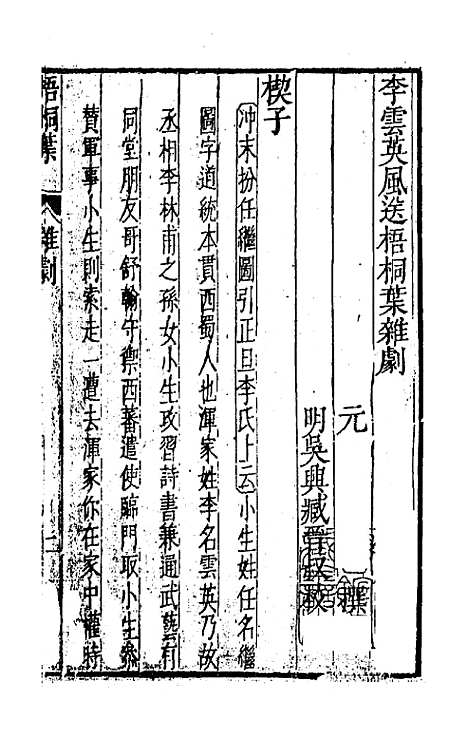 李雲英風送梧桐葉雜劇
元 撰
明吳興臧晉叔校
楔子
冲末扮任繼圖引正旦李氏上云小生姓任名繼
圖字道統本貫西蜀人也渾家姓李名雲英乃故
丞相李林甫之孫女小生攻習詩書兼通武藝有
同堂朋友哥舒翰守禦西蕃遣使臨門取小生參
贊軍事小生則索走一遭去渾家你在家中權時
梧桐葉 雜劇